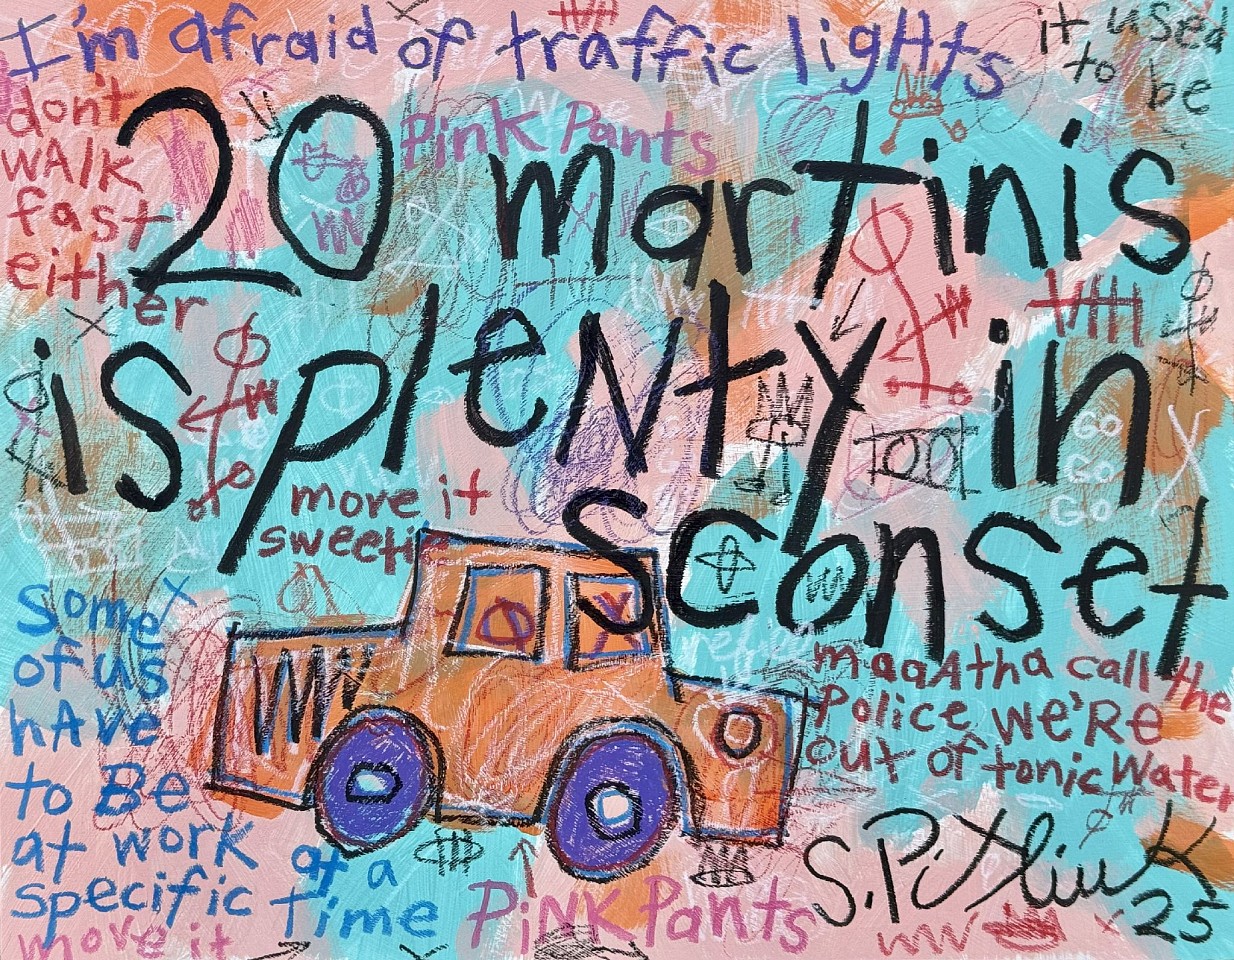 I'm afraid of traffic ligHts
it used
to be
don't
WAlK
fast
either
Pink Pants
20 martinis
is pleNty in
sconset
Go
Go
Go
more it
sweetie
some
of us
hAve
to Be
at work at a
specific time
move it
maaAtha call the
Police we'Re
out of tonic Water
PiNK Pants
25